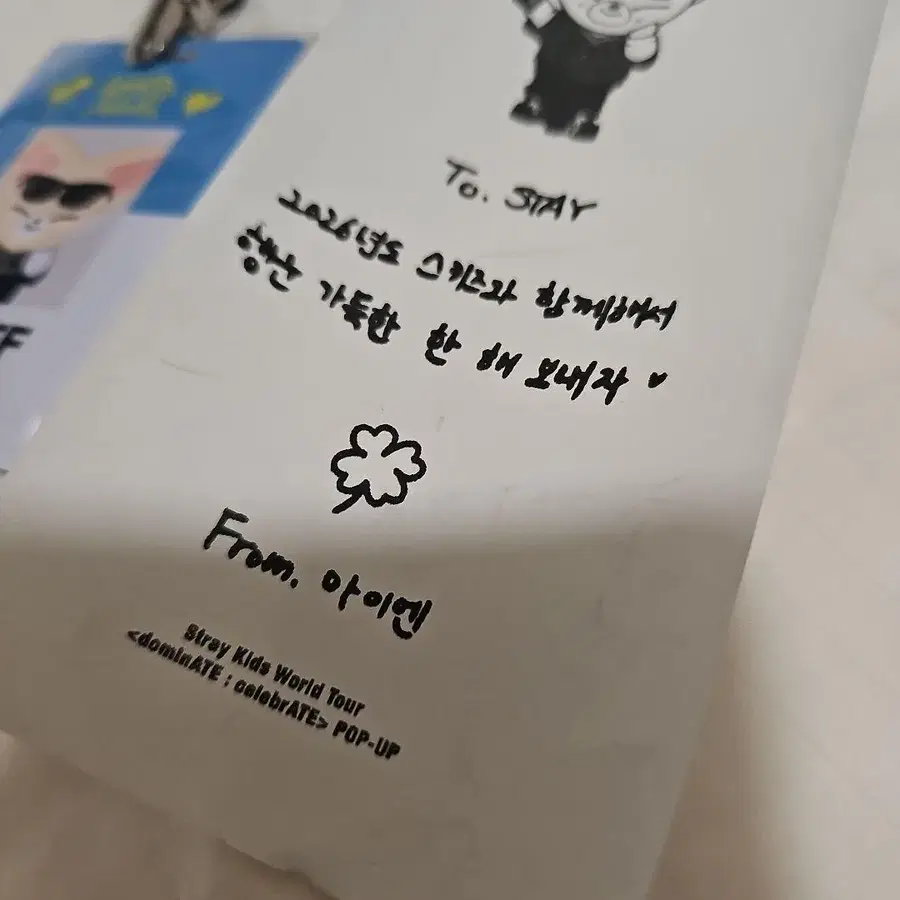 To. STAY
2026년도 스키즈와 함께해서
행운 가득한 한 해 보내자 ♥
From. 아이엔
Stray Kids World Tour
<dominATE : celebrATE> POP-UP